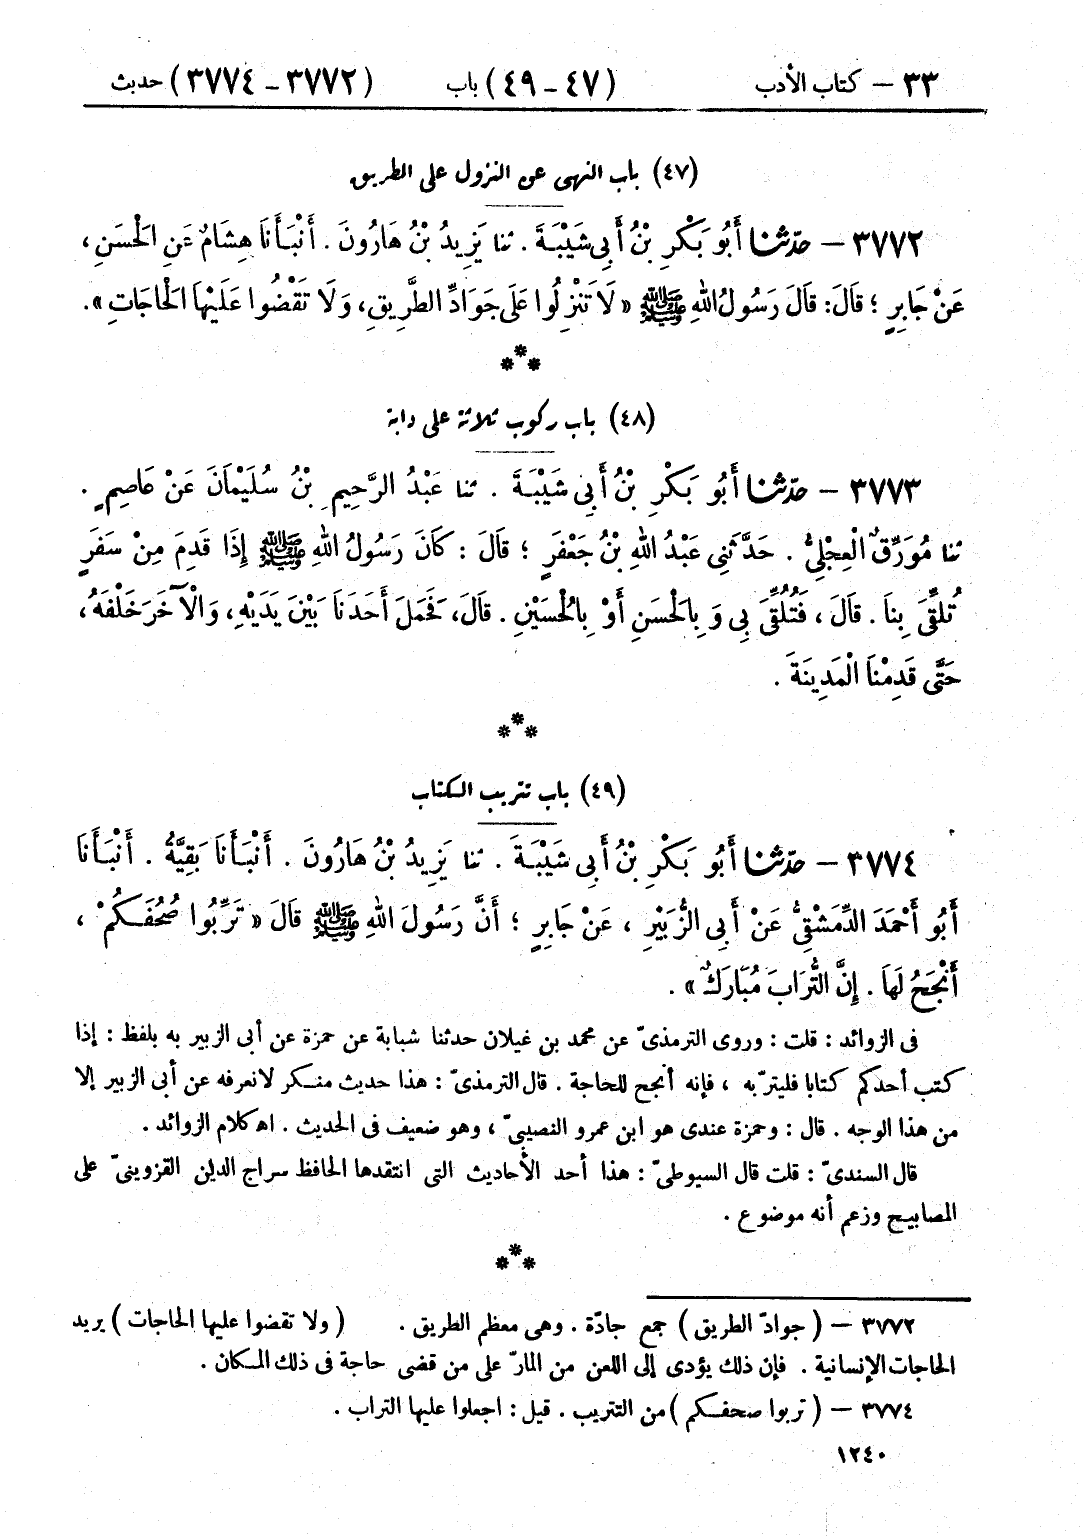 ٣٣ – كتاب الأدب (٤٧ - ٤٩) باب (٣٧٧٢ - ٣٧٧٤) حديث
(٤٧) باب النهى عن النزول على الطريق
٣٧٧٢ – حدّثنا أَبُو بَكْرِ بْنُ أَبِى شَيْبَةَ . ثنا يَزِيدُ بْنُ هَارُونَ . أَنْبَأَنَا هِشَامٌ عَنِ الْحَسَنِ ،
عَنْ جَابِرٍ ؛ قَالَ: قَالَ رَسُولُ اللهِ ﷺ « لَا تَنْزِلُوا عَلَى جَوَادِّ الطَّرِيقِ، وَلَا تَقْضُوا عَلَيْهَا الْحَاجَاتِ ».
***
(٤٨) باب ركوب ثلاثة على دابة
٣٧٧٣ – حدّثنا أَبُو بَكْرِ بْنُ أَبِى شَيْبَةَ . ثنا عَبْدُ الرَّحِيمِ بْنُ سُلَيْمَانَ عَنْ عَاصِمٍ .
ثنا مُوَرِّقٌ الْعِجْلِىُّ . حَدَّثَنِى عَبْدُ اللهِ بْنُ جَعْفَرٍ ؛ قَالَ : كَانَ رَسُولُ اللهِ ﷺ إِذَا قَدِمَ مِنْ سَفَرٍ
تُلُقِّىَ بِنَا . قَالَ ، فَتُلُقِّىَ بِى وَ بِالْحَسَنِ أَوْ بِالْحُسَيْنِ . قَالَ، فَحَمَلَ أَحَدَنَا بَيْنَ يَدَيْهِ، وَالْآخَرَ خَلْفَهُ ،
حَتَّى قَدِمْنَا الْمَدِينَةَ .
***
(٤٩) باب تتريب الكتاب
٣٧٧٤ – حدّثنا أَبُو بَكْرِ بْنُ أَبِى شَيْبَةَ . ثنا يَزِيدُ بْنُ هَارُونَ . أَنْبَأَنَا بَقِيَّةُ . أَنْبَأَنَا
أَبُو أَحْمَدَ الدِّمَشْقِىُّ عَنْ أَبِى الزُّبَيْرِ ، عَنْ جَابِرٍ ؛ أَنَّ رَسُولَ اللهِ ﷺ قَالَ « تَرِّبُوا صُحُفَكُمْ ،
أَنْجَحُ لَهَا . إِنَّ التُّرَابَ مُبَارَكٌ » .
فى الزوائد : قلت : وروى الترمذىّ عن محمد بن غيلان حدثنا شبابة عن حمزة عن أبى الزبير به بلفظ : إذا
كتب أحدكم كتابا فليترّبه ، فإنه أنجح للحاجة . قال الترمذىّ : هذا حديث منكر لانعرفه عن أبى الزبير إلا
من هذا الوجه . قال : وحمزة عندى هو ابن عمرو النصيبىّ ، وهو ضعيف فى الحديث . اه كلام الزوائد .
قال السندىّ : قلت قال السيوطىّ : هذا أحد الأحاديث التى انتقدها الحافظ سراج الدين القزوينىّ على
المصابيح وزعم أنه موضوع .
***
٣٧٧٢ – ( جوادّ الطريق ) جمع جادّة . وهى معظم الطريق . ( ولا تقضوا عليها الحاجات ) يريد
الحاجات الإنسانية . فإن ذلك يؤدى إلى اللعن من المارّ على من قضى حاجة فى ذلك المكان .
٣٧٧٤ – ( تربوا صحفكم ) من التتريب . قيل : اجعلوا عليها التراب .
١٢٤٠